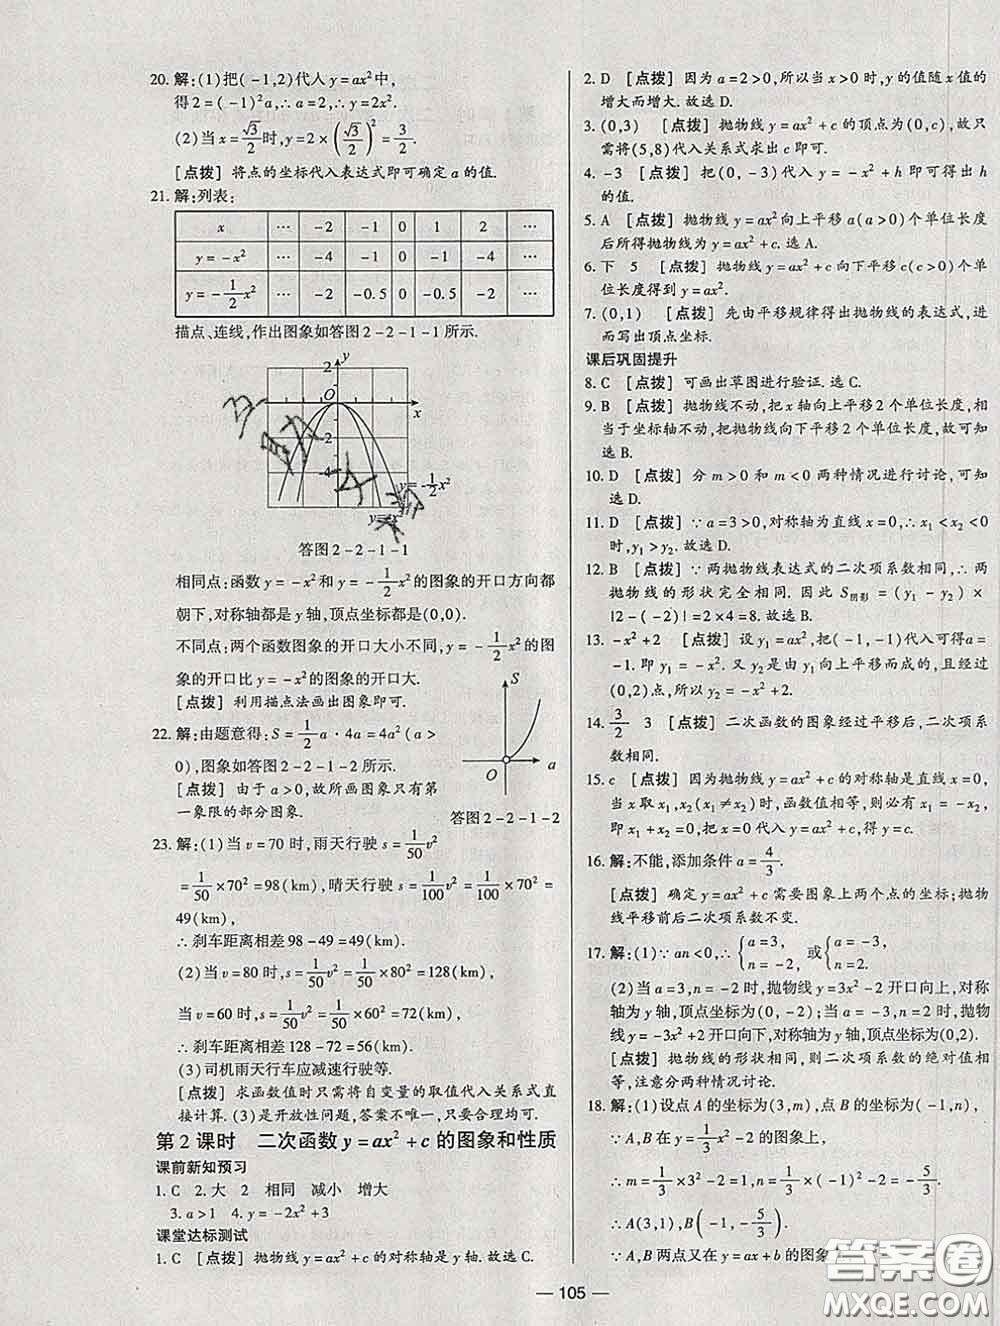 20. 解:(1)把(-1,2)代人 y=ax²中,
得2=(-1)²a,∴a=2,∴y=2x².
(2)当x=√3/2时,y=2×(√3/2)²=3/2.
[点拨] 将点的坐标代入表达式即可确定a的值.
21. 解:列表:
x ⋯ -2 -1 0 1 2 ⋯
y=-x² ⋯ -4 -1 0 -1 -4 ⋯
y=-1/2x² ⋯ -2 -0.5 0 -0.5 -2 ⋯
描点、连线,作出图象如答图2-2-1-1所示.
2 y
O x
-2
-4
y=-1/2x²
y=-x²
答图2-2-1-1
相同点:函数y=-x²和y=-1/2x²的图象的开口方向都
朝下,对称轴都是y轴,顶点坐标都是(0,0).
不同点:两个函数图象的开口大小不同,y=-1/2x²的图
象的开口比y=-x²的图象的开口大.
[点拨] 利用描点法画出图象即可.
22. 解:由题意得:S=1/2a·4a=4a²(a>
0),图象如答图2-2-1-2所示.
[点拨] 由于a>0,故所画图象只有第
一象限的部分图象.
S
O a
答图2-2-1-2
23. 解:(1)当v=70时,雨天行驶s=1/50v²
=1/50×70²=98(km),晴天行驶s=1/100v²=1/100×70²=
49(km),
∴刹车距离相差98-49=49(km).
(2)当v=80时,s=1/50v²=1/50×80²=128(km),
当v=60时,s=1/50v²=1/50×60²=72(km),
∴刹车距离相差128-72=56(km).
(3)司机雨天行车应减速行驶等.
[点拨] 求函数值时只需将自变量的取值代入关系式直
接计算.(3)是开放性问题,答案不唯一,只要合理均可.
第2课时 二次函数y=ax²+c的图象和性质
课前新知预习
1. C 2. 大 2 相同 减小 增大
3. a>1 4. y=-2x²+3
课堂达标测试
1. C [点拨] 抛物线y=ax²+c的对称轴是y轴.故选C.
2. D [点拨] 因为a=2>0,所以当x>0时,y的值随x值的
增大而增大.故选D.
3. (0,3) [点拨] 抛物线y=ax²+c的顶点为(0,c),故只
需将(5,8)代入关系式求出c即可.
4. -3 [点拨] 把(0,-3)代入y=-x²+h即可得出h
的值.
5. A [点拨] 抛物线y=ax²向上平移a(a>0)个单位长度
后所得抛物线为y=ax²+c.选A.
6. 下 5 [点拨] 抛物线y=ax²+c向下平移c(c>0)个单
位长度得到y=ax².
7. (0,1) [点拨] 先由平移规律得出抛物线的表达式,进
而写出顶点坐标.
课后巩固提升
8. C [点拨] 可画出草图进行验证.选C.
9. B [点拨] 抛物线不动,把x轴向上平移2个单位长度,相
当于坐标轴不动,把抛物线向下平移2个单位长度,故可知
选B.
10. D [点拨] 分m>0和m<0两种情况进行讨论,可知
选D.
11. D [点拨] ∵a=3>0,对称轴为直线x=0,∴x₁<x₂<0
时,y₁>y₂.故选D.
12. B [点拨] ∵两抛物线表达式的二次项系数相同,∴两
抛物线的形状完全相同.因此S阴影=(y₁-y₂)×
|2-(-2)|=2×4=8.故选B.
13. -x²+2 [点拨] 设y₁=ax²,把(-1,-1)代入可得a=
-1.即y₁=-x².又y₂是由y₁向上平移而成的,且经过
(0,2)点,所以y₂=-x²+2.
14. 3/2 3 [点拨] 二次函数的图象经过平移后,二次项系
数相同.
15. c [点拨] 因为抛物线y=ax²+c的对称轴是直线x=0,
当x取x₁,x₂(x₁≠x₂)时,函数值相等,则必有x₁=-x₂,
即x₁+x₂=0.把x=0代入y=ax²+c,得y=c.
16. 解:不能,添加条件a=4/3.
[点拨] 确定y=ax²+c需要图象上两个点的坐标;抛物
线平移前后二次项系数不变.
17. 解:(1)∵an<0,∴{a=3,n=-2,或{a=-3,n=2.
(2)当a=3,n=-2时,抛物线y=3x²-2开口向上,对称
轴为y轴,顶点坐标为(0,-2);当a=-3,n=2时,抛物
线y=-3x²+2开口向下,对称轴为y轴,顶点坐标为(0,2).
[点拨] 抛物线的形状相同,则二次项系数的绝对值相
等,注意分两种情况讨论.
18. 解:(1)设点A的坐标为(3,m),点B的坐标为(-1,n),
∵A,B在y=1/3x²-2的图象上,
∴m=1/3×3²-2=1,n=1/3×(-1)²-2=-5/3.
∴A(3,1),B(-1,-5/3).
∵A,B两点又在y=ax+b的图象
— 105 —
答案圈
MXQE.COM